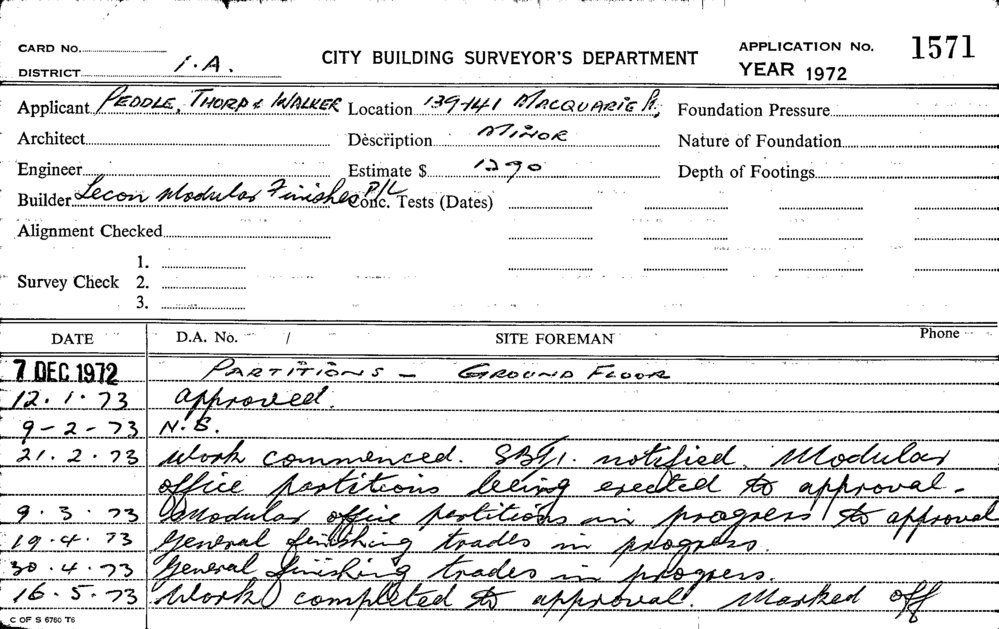 CARD No.
CITY BUILDING SURVEYOR'S DEPARTMENT
APPLICATION No. 1571
DISTRICT 1.A.
YEAR 1972
Applicant PEDDLE, THORP & WALKER Location 139-141 MACQUARIE St, Foundation Pressure
Architect Description MINOR Nature of Foundation
Engineer Estimate $ 1290 Depth of Footings
Builder Lecon Modular Finishes P/L Conc. Tests (Dates)
Alignment Checked
1.
Survey Check 2.
3.
DATE D.A. No. / SITE FOREMAN Phone
7 DEC 1972 PARTITIONS - GROUND FLOOR
12.1.73 approved.
9-2-73 N.S.
21.2.73 Work commenced. notified. Modular
office partitions being erected to approval.
9.3.73 Modular office partitions in progress to approval
19.4.73 General finishing trades in progress.
30.4.73 General finishing trades in progress.
16.5.73 Work completed to approval. Marked off
C OF S 6760 T6